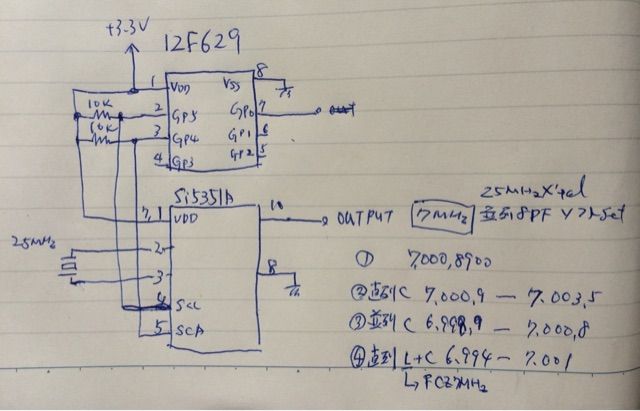 +3.3V
12F629
1 VDD VSS 8
10K 2 GP5 GP0 7
10K 3 GP4 GP1 6
4 GP3 GP2 5
Si5351A
7, 1 VDD 10 OUTPUT
25MHz 2
3 8
4 SCL
5 SCA
25MHz X'tal
7MHz 並列8PF ソフトSet
① 7,000,8900
②直列C 7.000,9 — 7.003,5
③並列C 6.998,9 — 7.000,8
④直列 L+C 6.994 — 7.001
FCZ7MHz